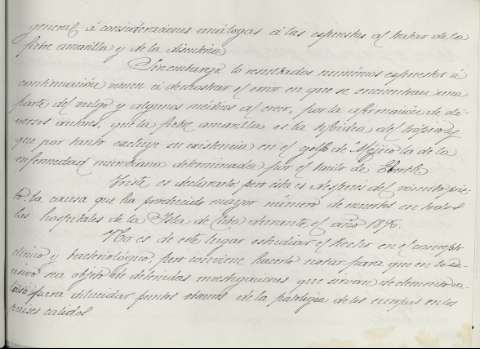 general á consideraciones análogas á las espuestas al tratar de la
fiebre amarilla y de la disentería.
Sin embargo, lo resultados numéricos espuestos á
continuación vienen á demostrar el error en que se encuentran una
parte del vulgo y algunos médicos al creer, por la afirmación de
autores, que la fiebre amarilla es la tifoidea del trópico y
que por tanto excluye su existencia en el golfo de Méjico la de la
enfermedad determinada por el bacilo de Eberth.
Triste es declararlo, pero ésta es después del
la causa que ha producido mayor número de muertos en todos
los hospitales de la Isla de Cuba durante el año 1896.
No es de este lugar estudiar el hecho en el concepto
clínico y bacteriológico, pero conviene hacerlo notar para que en
sea objeto de investigaciones que sirvan de
para dilucidar puntos de la patología de los europeos en los
países cálidos.